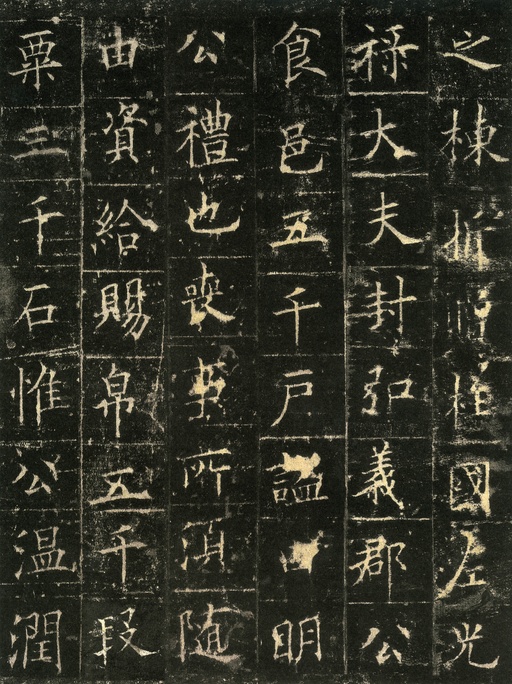 之棟折贈柱國左光
祿大夫封弘義郡公
食邑五千戶謚曰明
公禮也喪葬所須隨
由資給賜帛五千段
粟三千石惟公溫潤